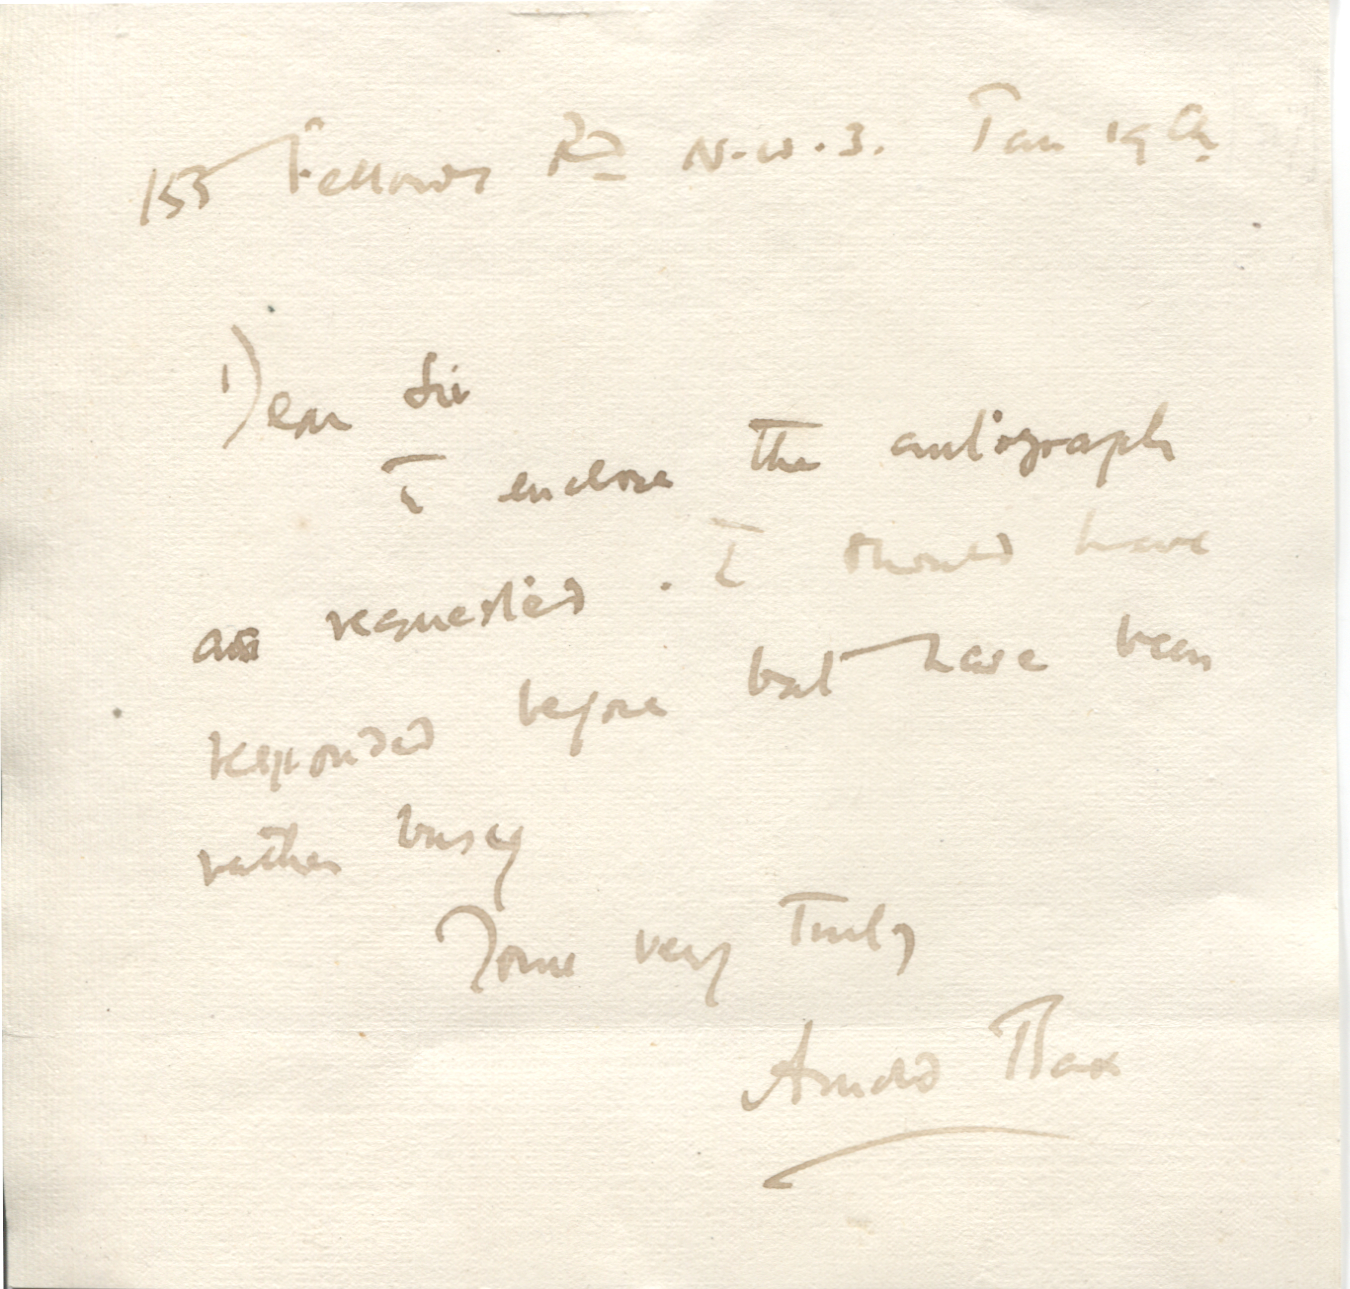 155 Fellows Rd N.W.3. Jan 19th
Dear Sir
I enclose the autograph
as requested. I should have
responded before but have been
rather busy
Yours very truly
Arnold Bax